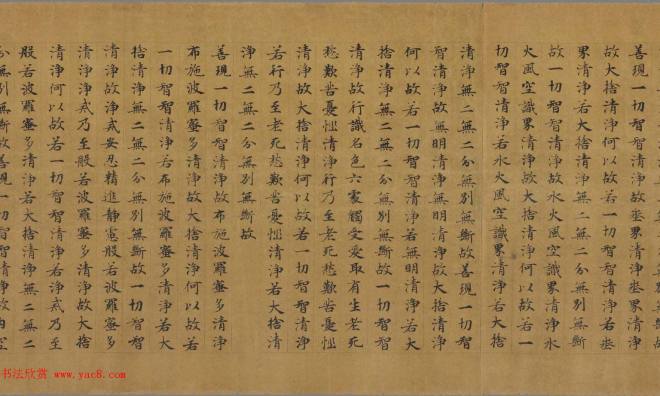 善現一切智智清淨故地界清淨地界清淨
故大捨清淨何以故若一切智智清淨若地
界清淨若大捨清淨無二無二分無別無斷
故一切智智清淨故水火風空識界清淨水
火風空識界清淨故大捨清淨何以故若一
切智智清淨若水火風空識界清淨若大捨
清淨無二無二分無別無斷故善現一切智
智清淨故無明清淨無明清淨故大捨清淨
何以故若一切智智清淨若無明清淨若大
捨清淨無二無二分無別無斷故一切智智
清淨故行識名色六處觸受愛取有生老死
愁歎苦憂惱清淨行乃至老死愁歎苦憂惱
清淨故大捨清淨何以故若一切智智清淨
若行乃至老死愁歎苦憂惱清淨若大捨清
淨無二無二分無別無斷故
善現一切智智清淨故布施波羅蜜多清淨
布施波羅蜜多清淨故大捨清淨何以故若
一切智智清淨若布施波羅蜜多清淨若大
捨清淨無二無二分無別無斷故一切智智
清淨故淨戒安忍精進靜慮般若波羅蜜多
清淨淨戒乃至般若波羅蜜多清淨故大捨
清淨何以故若一切智智清淨若淨戒乃至
般若波羅蜜多清淨若大捨清淨無二無二
分無別無斷故善現一切智智清淨故內空
书法欣赏
www.yac8.com